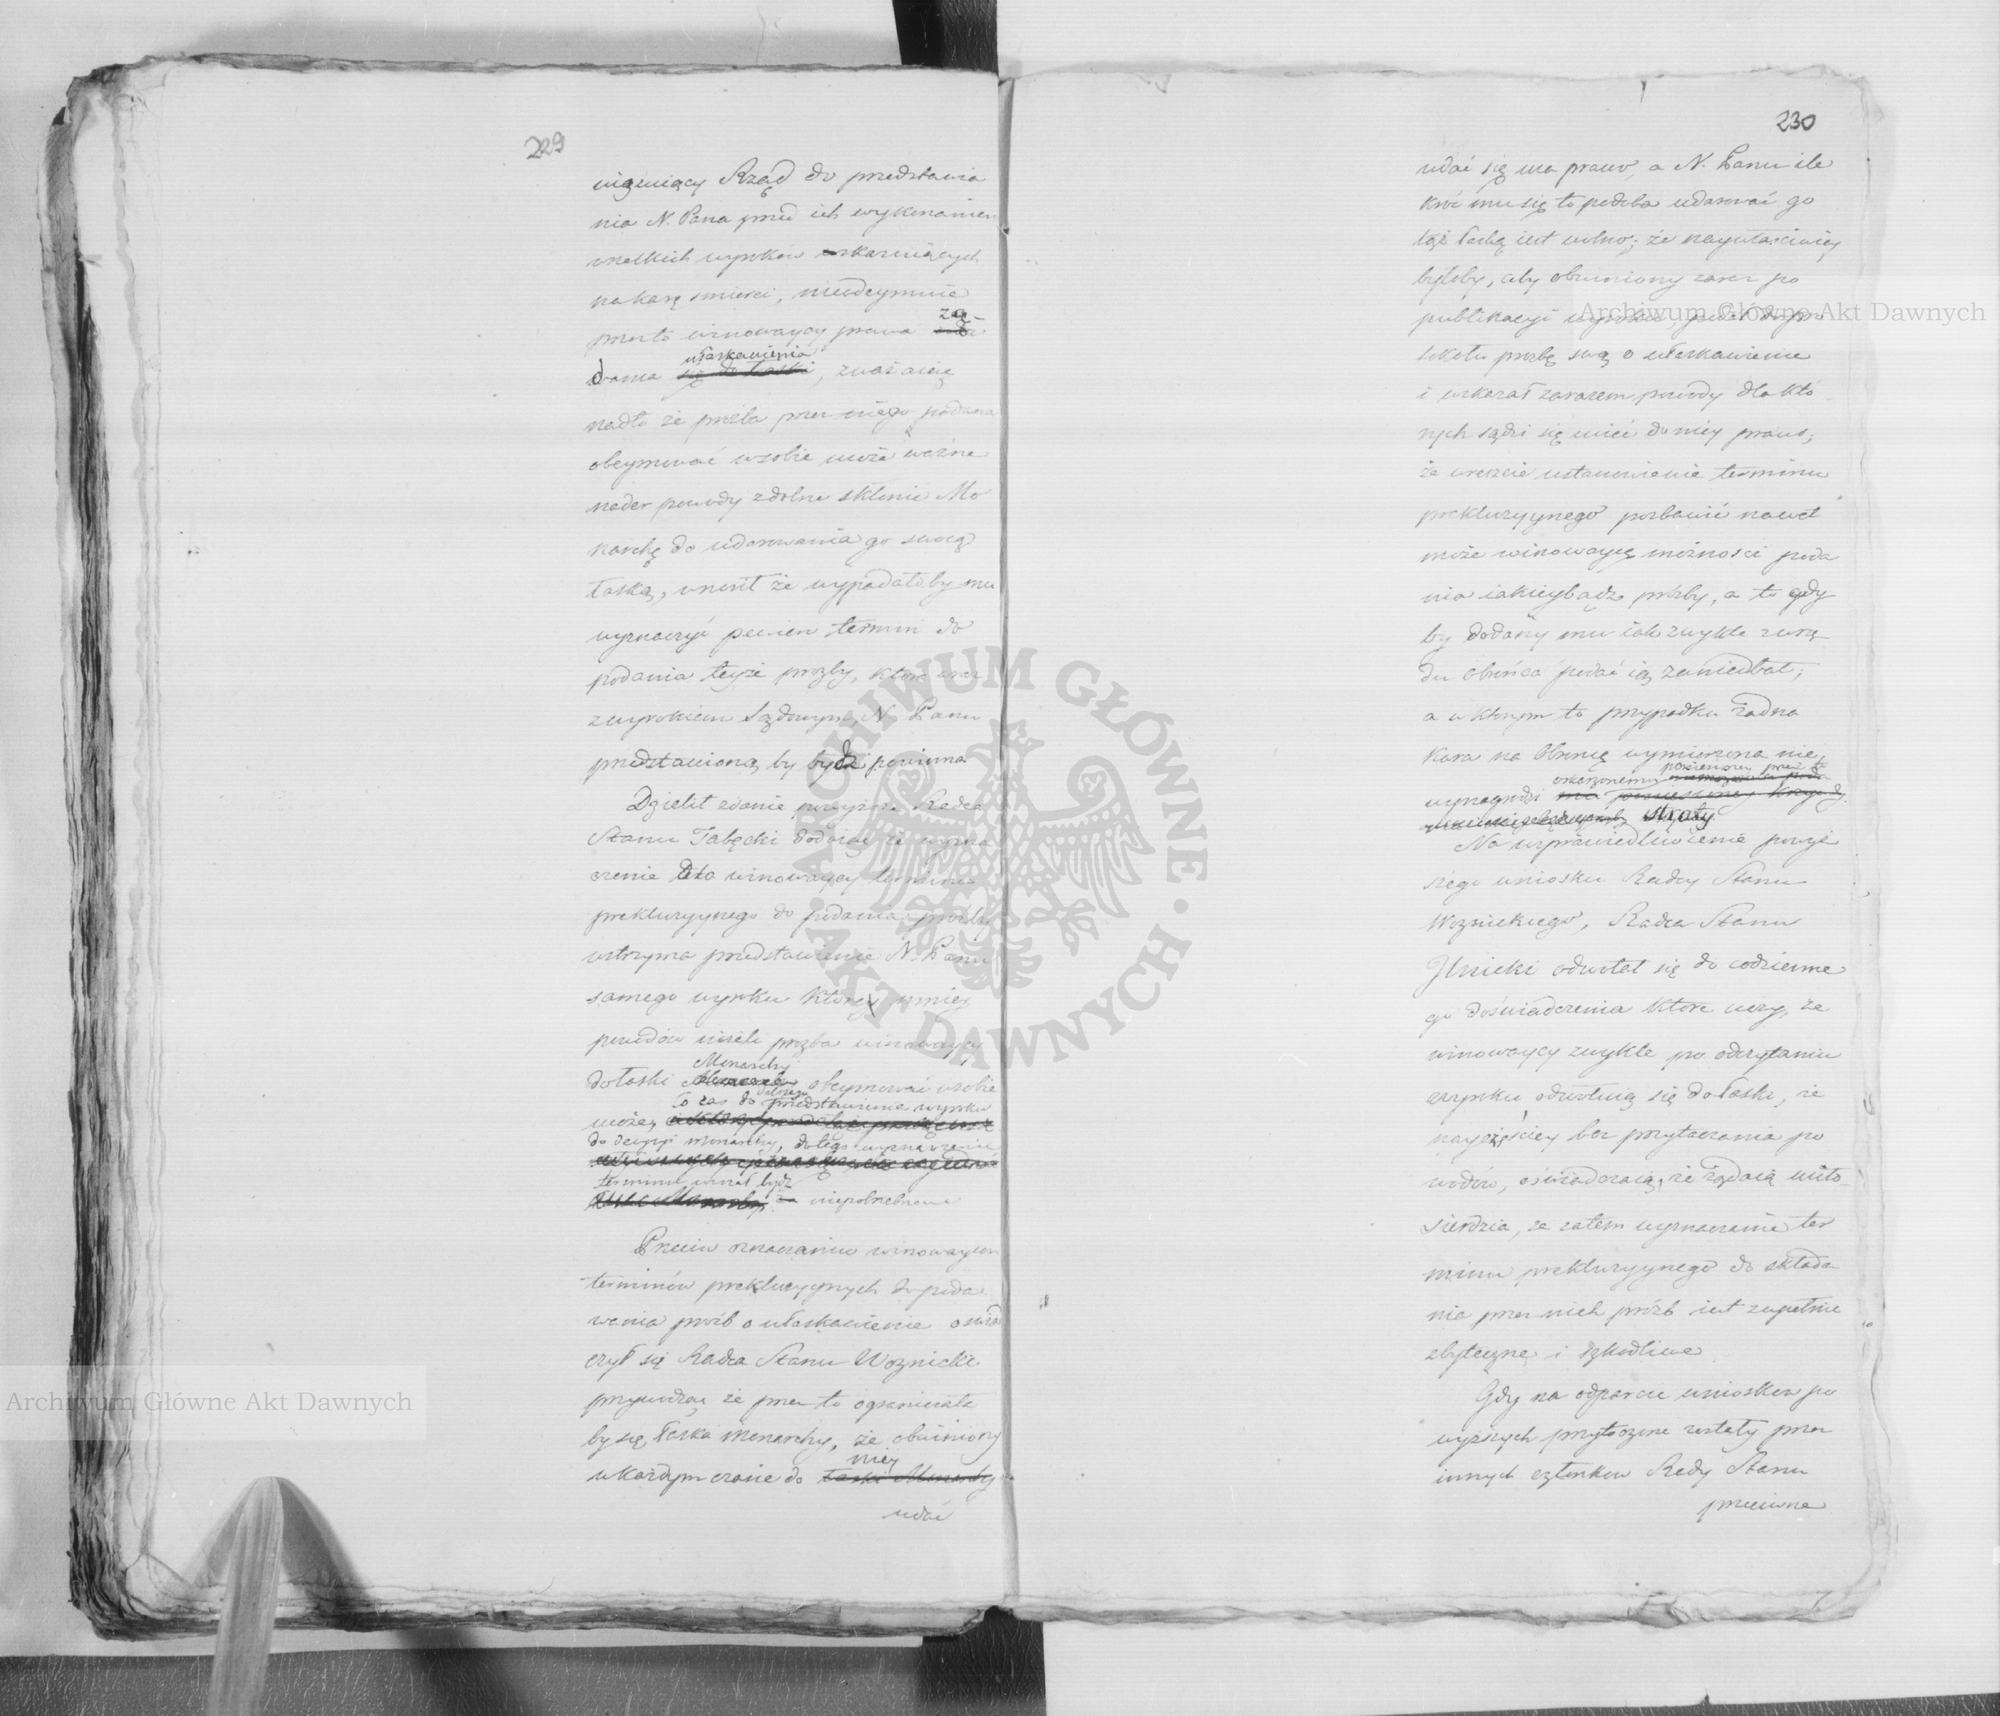 229
wiązuiący Rząd do przedstawia
nia N. Pana przed ich wykonaniem
wszelkich wyrokow skazuiących
na karę smierci, nieodeymuie
przeto winowaycy prawa żą-
dania ułaskawienia, zważaiąc
nadto że prożba przez niego podana
obeymować w sobie może ważne
nader powody zdolne skłonić Mo
narchę do udarowania go swoią
łaską, wniósł że wypadałoby mu
wyznaczyć pewien termin do
podania teyże prozby, która wraz
z wyrokiem Sądowym N. Panu
przedstawioną by bydź powinna
Dzielił zdanie powyższe Radca
Stanu Tabęcki dodaiąc że wyzna
czenie dla winowaycy terminu
prekluzyynego do podania prożby
wstrzyma przedstawienie N. Panu
samego wyroku który mniey
powodów niżeli prozba winowaycy
do łaski Monarchy obeymować w sobie
może, co zas do dalszego przedstawienia wyroku
do decyzyi Monarchy, do tego wyznaczenie
terminu uznał bydź za niepotrzebne
Przeciw oznaczaniu winowaycom
terminów prekluzyynych do poda
wania próżb o ułaskawienie oswiad
czył się Radca Stanu Woznicki
przywodząc że przez to ograniczała
by się łaska Monarchy, że obwiniony
w każdym czasie do niey
udać
230
udać się ma prawo, a N. Panu ile
kroć mu się to podoba udarować go
tąż łaską iest wolno; że naywłaściwiey
byłoby, aby obwiniony zaraz po
publikacyi wyroku, podał do pro
tokołu prożbę swą o ułaskawienie
i wskazał zarazem powody dla któ
rych sądzi się mieć do niey prawo;
że wreszcie ustanowienie terminu
prekluzyynego pozbawić nawet
może winowaycę możności poda
nia iakieybądź próżby, a to gdy
by dodany mu iak zwykle z urzę
du obrońca podać ią zaniedbał;
a w którym to przypadku żadna
kara na Obrońcę wymierzona nie
wynagrodzi oskarżonemu poniesioney przez to
straty
Na usprawiedliwienie powyż
szego wniosku Radcy Stanu
Woznickiego, Radca Stanu
Ilnicki odwołał się do codzienne
go doświadczenia które uczy, że
winowaycy zwykle po odczytaniu
wyroku odwołuią się do łaski, że
nayczęściey bez przytaczania po
wodów, oświadczaią, że żądaią miło
sierdzia, że zatem wyznaczanie ter
minu prekluzyynego do składa
nia przez nich próżb iest zupełnie
zbyteczne i szkodliwe
Gdy na odparcie wniosków po
wyższych przytoczone zostały przez
innych członkow Rady Stanu
przeciwne
Archiwum Główne Akt Dawnych
Archiwum Główne Akt Dawnych
ARCHIWUM GŁÓWNE · AKT DAWNYCH ·